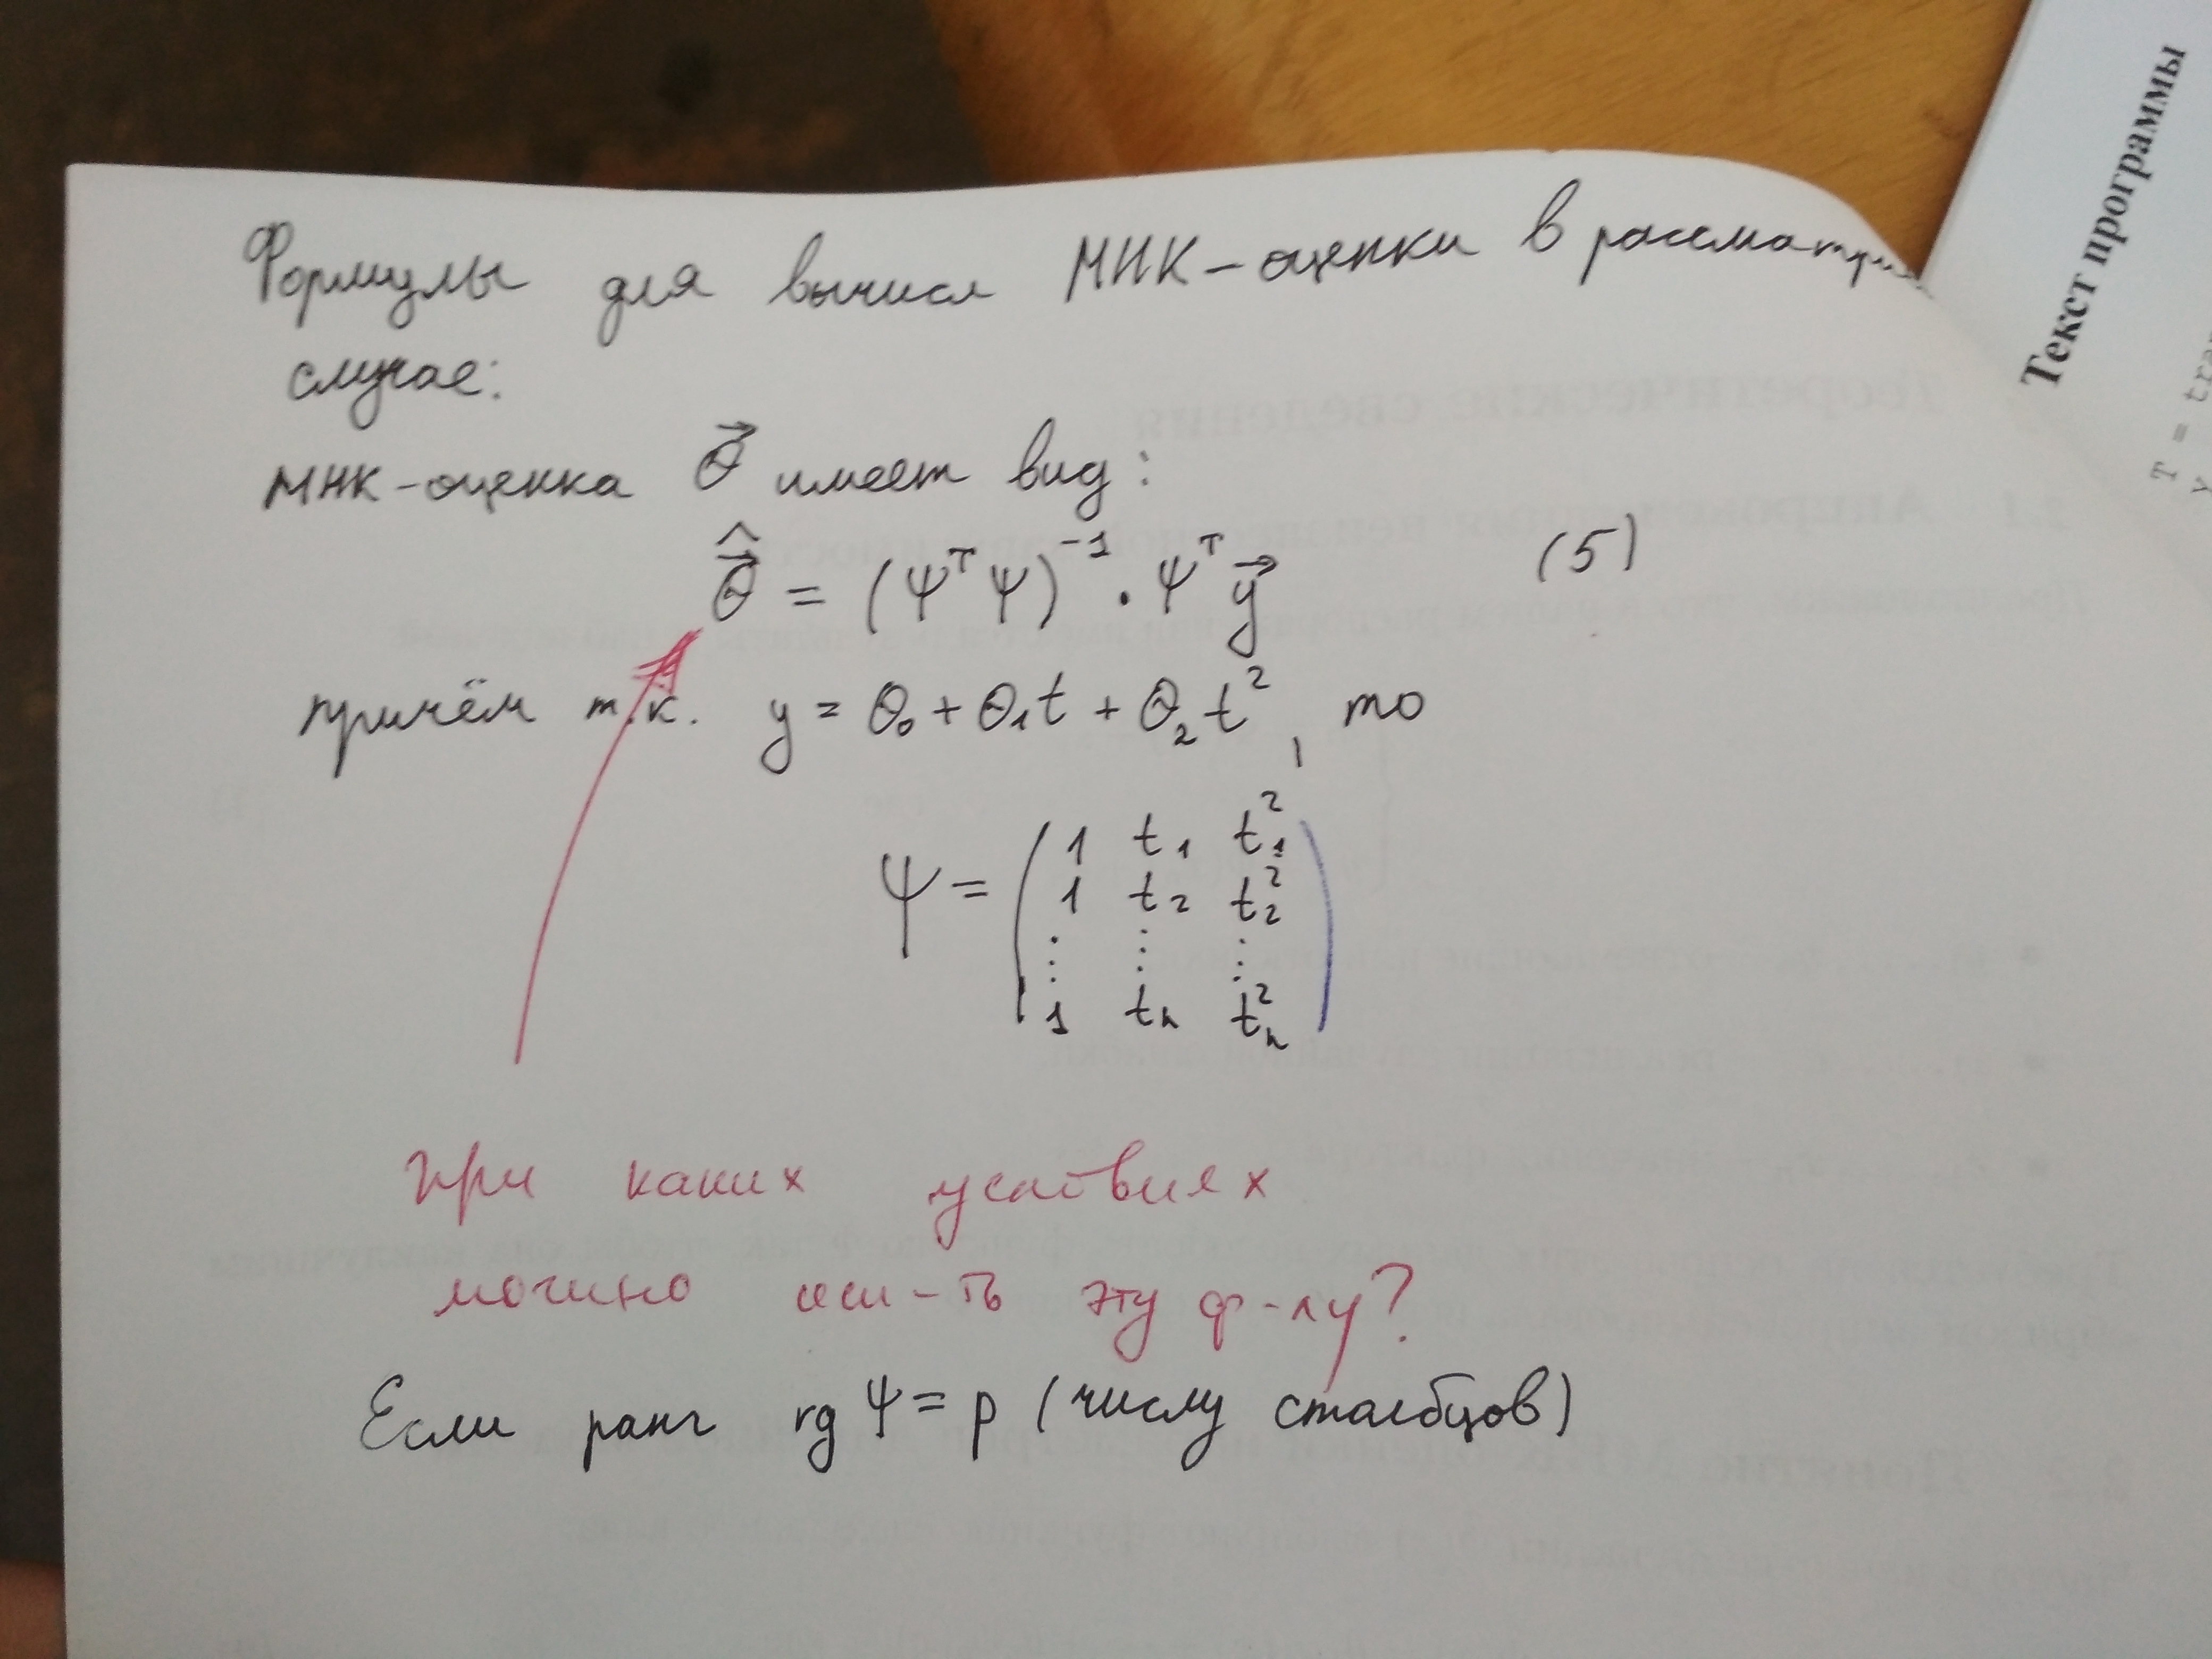 Формулы для вычисл МНК-оценки в рассматри
случае:
МНК-оценка θ⃗ имеет вид:
θ⃗̂ = (Ψᵀ Ψ)⁻¹ · Ψᵀ y⃗ (5)
причём т.к. y = θ₀ + θ₁t + θ₂t², то
Ψ = ( 1 t₁ t₁²
1 t₂ t₂²
⋮ ⋮ ⋮
1 tₙ tₙ² )
При каких условиях
можно исп-ть эту ф-лу?
Если ранг rg Ψ = p (числу столбцов)
Текст программы
T =
y